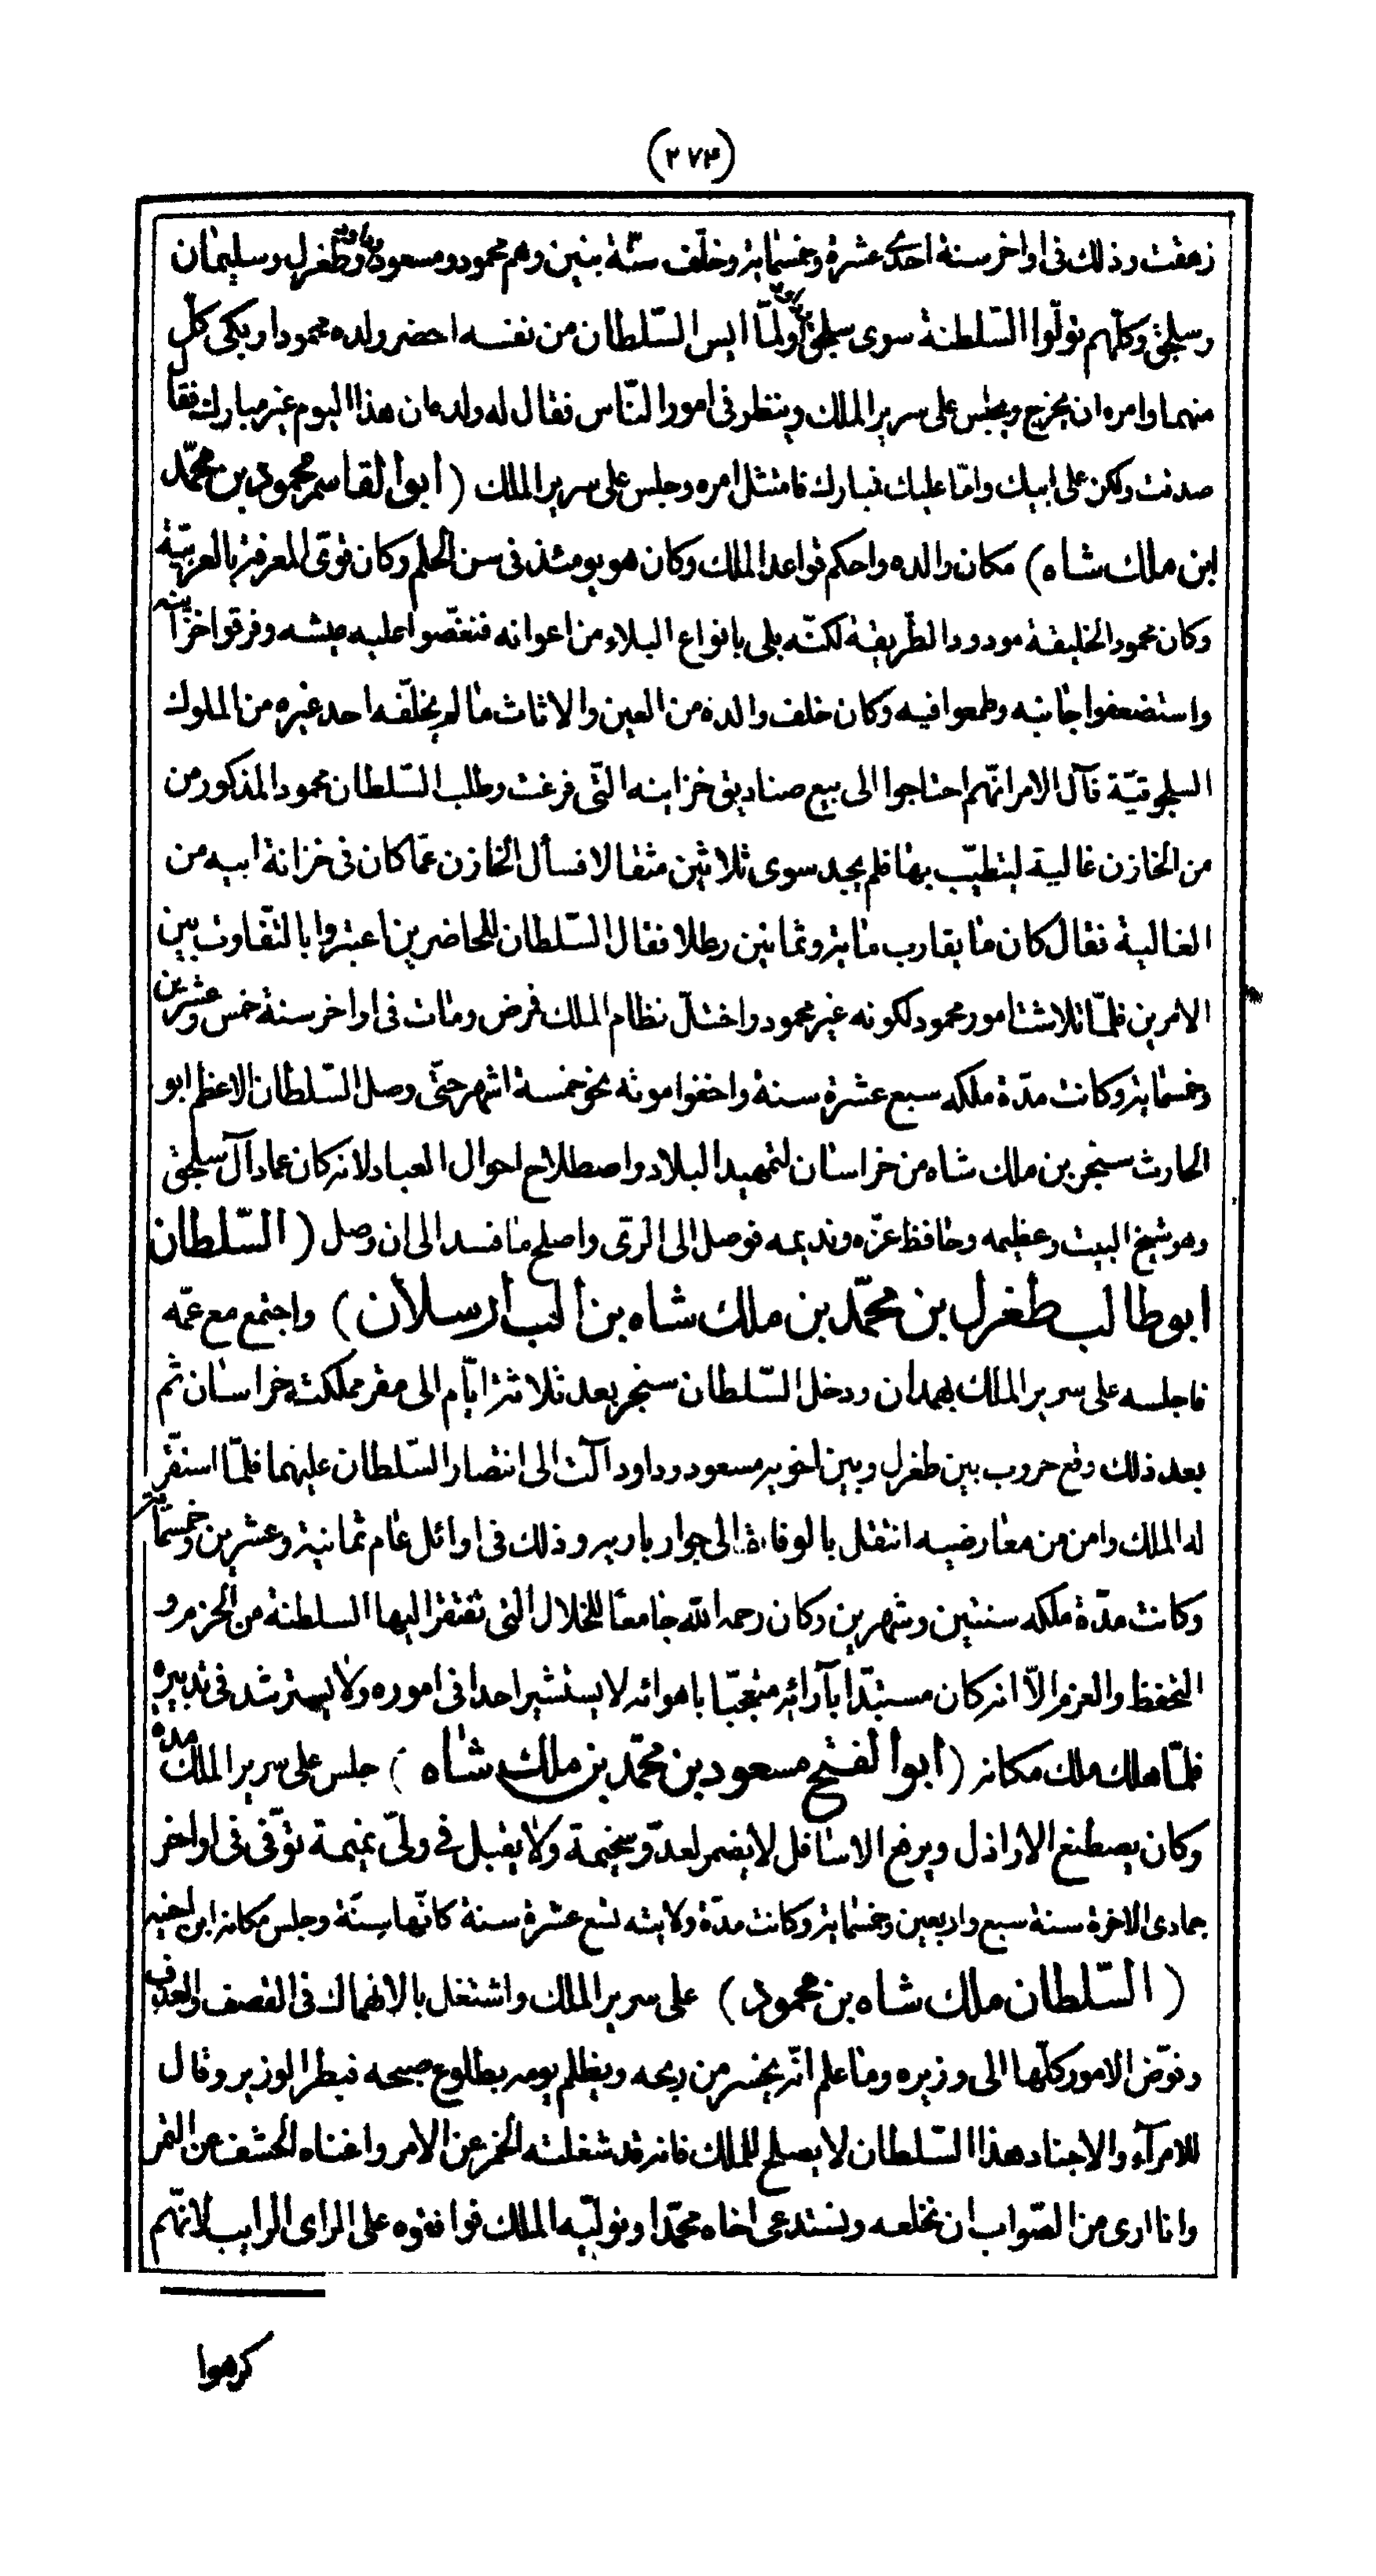 (٢٧٤)
زهقت وذلك فى اواخر سنة احدى عشرة وخمسمایة وخلّف ستّة بنین وهم محمود ومسعود وداود وطغرل وسلیمان
وسلجق وكلّهم تولّوا السّلطنة سوى سلجق ولمّا ایس السّلطان من نفسه احضر ولده محمودا وبكى كل
منهما وامره ان یخرج ویجلس على سریر الملك وینظر فى امور النّاس فقال له ولده ان هذا الیوم غیر مبارك فقال
صدقت ولكن على ابیك وامّا علیك فمبارك فامتثل امره وجلس على سریر الملك (ابو القاسم محمود بن محمّد
ابن ملك شاه) مكان والده واحكم قواعد الملك وكان هو یومئذ فى سن الحلم وكان قوىّ المعرفة بالعربیّة
وكان محمود الخلیقة مودود الطّریقة لكنّه بلى بانواع البلاء من اعوانه فنغّصوا علیه عیشه وفرقوا خزاینه
واستضعفوا جانبه وطمعوا فیه وكان خلف والده من العین والاثاث ما لم یخلّفه احد غیره من الملوك
السلجوقیّة فآل الامر انّهم احتاجوا الى بیع صنادیق خزاینه الّتى فرغت وطلب السّلطان محمود المذكور من
من الخازن غالیة لیتطیّب بها فلم یجد سوى ثلاثین مثقالا فسأل الخازن عمّا كان فى خزانة ابیه من
الغالیة فقال كان ما یقارب مایة وثمانین رطلا فقال السّلطان للحاضرین اعتبروا بالتّفاوت بین
الامرین فلمّا تلاشتا مور محمود لكونه غیر محمود واختلّ نظام الملك فرض ومات فى اواخر سنة خمس وعشرین
وخمسمایة وكانت مدّة ملكه سبع عشرة سنة واخفوا موته نحو خمسة اشهر حتّى وصل السّلطان الاعظم ابو
الحارث سنجر بن ملك شاه من خراسان لتمهید البلاد واصطلاح احوال العباد لانه كان عماد آل سلجق
وهو شیخ البیت وعظیمه وحافظ عزّه وندیمه فوصل الى الرّى واصلح ما فسد الى ان وصل (السّلطان
ابو طالب طغرل بن محمّد بن ملك شاه بن الب ارسلان) واجتمع مع عمّه
فاجلسه على سریر الملك بهمدان ودخل السّلطان سنجر بعد ثلاثة ایّام الى مقر مملكته خراسان ثم
بعد ذلك وقع حروب بین طغرل وبین اخویه مسعود وداود آلت الى انتصار السّلطان علیهما فلمّا استقرّ
له الملك وامن من معارضیه انتقل بالوفاة الى جوار باریه وذلك فى اوائل عام ثمانیة وعشرین وخمسمایة
وكانت مدّة ملكه سنتین وشهرین وكان رحمه الله جامعا للخلال الّتى تفتقر الیها السلطنة من الحزم و
التحفظ والعزم الّا انه كان مستبدّا بآرائه متعجبّا باهوائه لا یستشیر احدا فى اموره ولا یسترشد فى تدبیره
فلمّا هلك ملك مكانه (ابو الفتح مسعود بن محمّد بن ملك شاه) جلس على سریر الملك مده
وكان یصطنع الاراذل ویرفع الاسافل لا یضمر لعدّو سخیمة ولا یقبل فى ولىّ نمیمة توّفى فى اواخر
جمادى الاخرة سنة سبع واربعین وخمسمایة وكانت مدّة ولایته تسع عشرة سنة كانّها سِنَة وجلس مكانه ابن اخیه
(السّلطان ملك شاه بن محمود) على سریر الملك واشتغل بالانهماك فى القصف والعزف
وفوّض الامور كلّها الى وزیره وما علم انّه یخسر من ربحه ویظلم یومه بطلوع صبحه فبطر الوزیر وقال
للامرآء والاجناد هذا السّلطان لا یصلح للملك فانه قد شغلته الخمر عن الامر واغناه الحشف عن التمر
وانا ارى من الصّواب ان نخلعه ونستدعى اخاه محمّدا ونولّیه الملك فوافقوه على الراى الرایب لانّهم
كرهوا